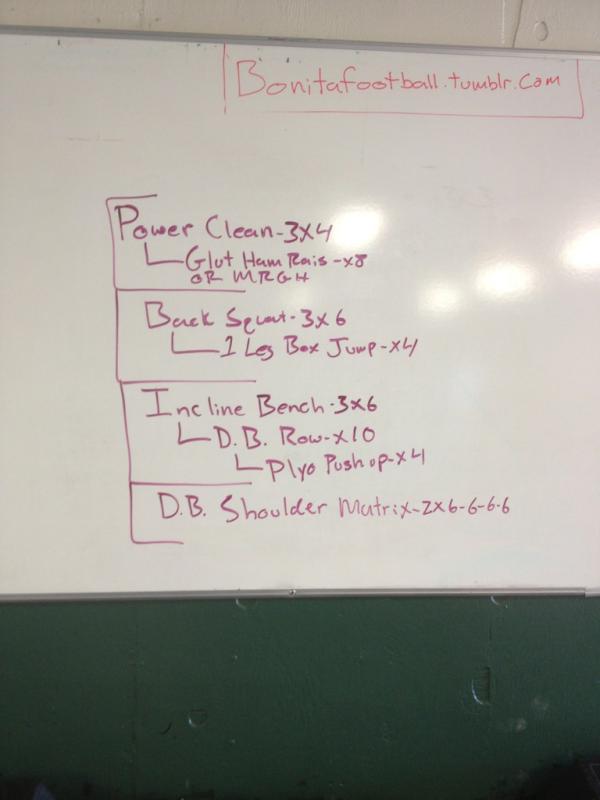 Bonitafootball.tumblr.com
Power Clean-3x4
Glut Ham Rais-x8
OR MRGH
Back Squat-3x6
1 Leg Box Jump-x4
Incline Bench-3x6
D.B. Row-x10
Plyo Pushup-x4
D.B. Shoulder Matrix-2x6-6-6-6